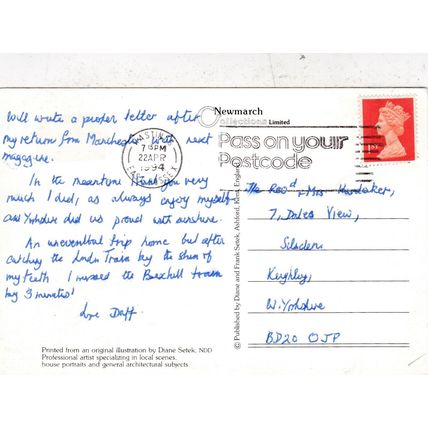 Will write a proper letter after
my return from Manchester with next
magazine.
In the meantime thank you very
much I did, as always enjoy myself
and Yorkshire did us proud with sunshine.
An uneventful trip home but after
catching the London Train by the skin of
my teeth I missed the Bexhill train
by 3 minutes!
Love Daff.
Printed from an original illustration by Diane Setek, NDD
Professional artist specializing in local scenes,
house portraits and general architectural subjects.
Newmarch
Collections Limited
HASTINGS
7 PM
22 APR
1994
EAST SUSSEX
Pass on your
Postcode
© Published by Diane and Frank Setek, Ashford, Kent, England
The Revd & Mrs
7, Dales View,
Silsden
Keighley,
W. Yorkshire
BD20 0JP